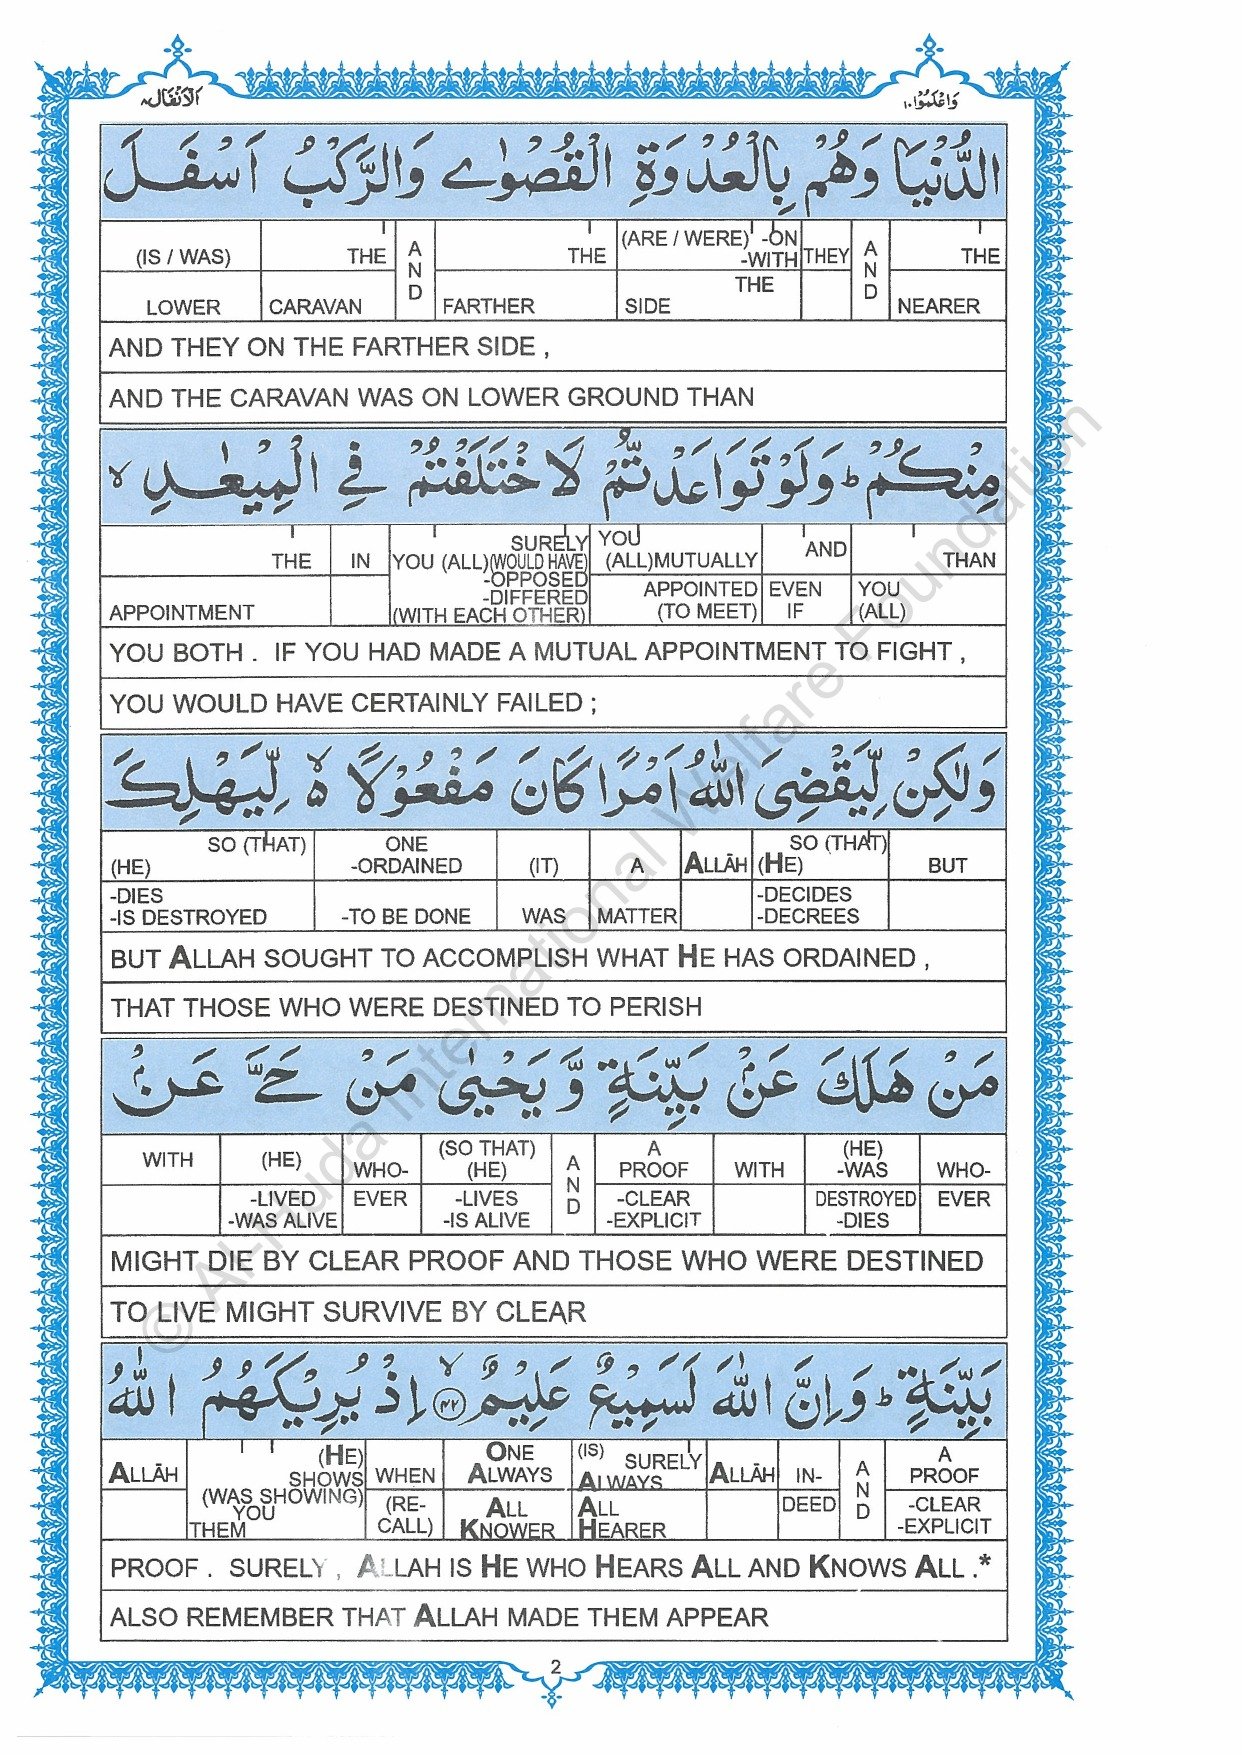 الانفال ٨
واعلموا ١٠
الدُّنْيَا وَهُمْ بِالْعُدْوَةِ الْقُصْوٰى وَالرَّكْبُ اَسْفَلَ
(IS / WAS) THE AND THE (ARE / WERE) -ON -WITH THEY AND THE
LOWER CARAVAN FARTHER SIDE THE NEARER
AND THEY ON THE FARTHER SIDE ,
AND THE CARAVAN WAS ON LOWER GROUND THAN
مِنْكُمْ ؕ وَلَوْ تَوَاعَدْتُّمْ لَاخْتَلَفْتُمْ فِى الْمِيْعٰدِ ۙ
THE IN SURELY YOU (ALL)(WOULD HAVE) YOU (ALL)MUTUALLY AND THAN
APPOINTMENT -OPPOSED -DIFFERED (WITH EACH OTHER) APPOINTED (TO MEET) EVEN IF YOU (ALL)
YOU BOTH . IF YOU HAD MADE A MUTUAL APPOINTMENT TO FIGHT ,
YOU WOULD HAVE CERTAINLY FAILED ;
وَلٰكِنْ لِّيَقْضِىَ اللّٰهُ اَمْرًا كَانَ مَفْعُوْلًا ۙ لِّيَهْلِكَ
SO (THAT) (HE) ONE -ORDAINED (IT) A ALLĀH SO (THAT) (HE) BUT
-DIES -IS DESTROYED -TO BE DONE WAS MATTER -DECIDES -DECREES
BUT ALLAH SOUGHT TO ACCOMPLISH WHAT HE HAS ORDAINED ,
THAT THOSE WHO WERE DESTINED TO PERISH
مَنْ هَلَكَ عَنْۢ بَيِّنَةٍ وَّيَحْيٰى مَنْ حَىَّ عَنْۢ
WITH (HE) WHO- (SO THAT) (HE) AND A PROOF WITH (HE) -WAS WHO-
-LIVED -WAS ALIVE EVER -LIVES -IS ALIVE -CLEAR -EXPLICIT DESTROYED -DIES EVER
MIGHT DIE BY CLEAR PROOF AND THOSE WHO WERE DESTINED
TO LIVE MIGHT SURVIVE BY CLEAR
بَيِّنَةٍ ؕ وَاِنَّ اللّٰهَ لَسَمِيْعٌ عَلِيْمٌ ۙ ﴿۴۲﴾ اِذْ يُرِيْكَهُمُ اللّٰهُ
ALLĀH (HE) SHOWS (WAS SHOWING) WHEN ONE ALWAYS (IS) SURELY ALWAYS ALLĀH IN- AND A PROOF
YOU THEM (RE-CALL) ALL KNOWER ALL HEARER DEED -CLEAR -EXPLICIT
PROOF . SURELY , ALLAH IS HE WHO HEARS ALL AND KNOWS ALL .*
ALSO REMEMBER THAT ALLAH MADE THEM APPEAR
2
© Al-Huda International Welfare Foundation